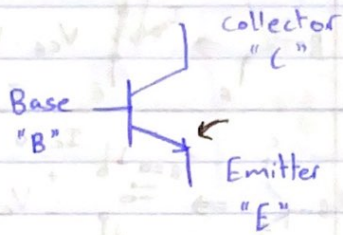 collector
"C"
Base
"B"
Emitter
"E"